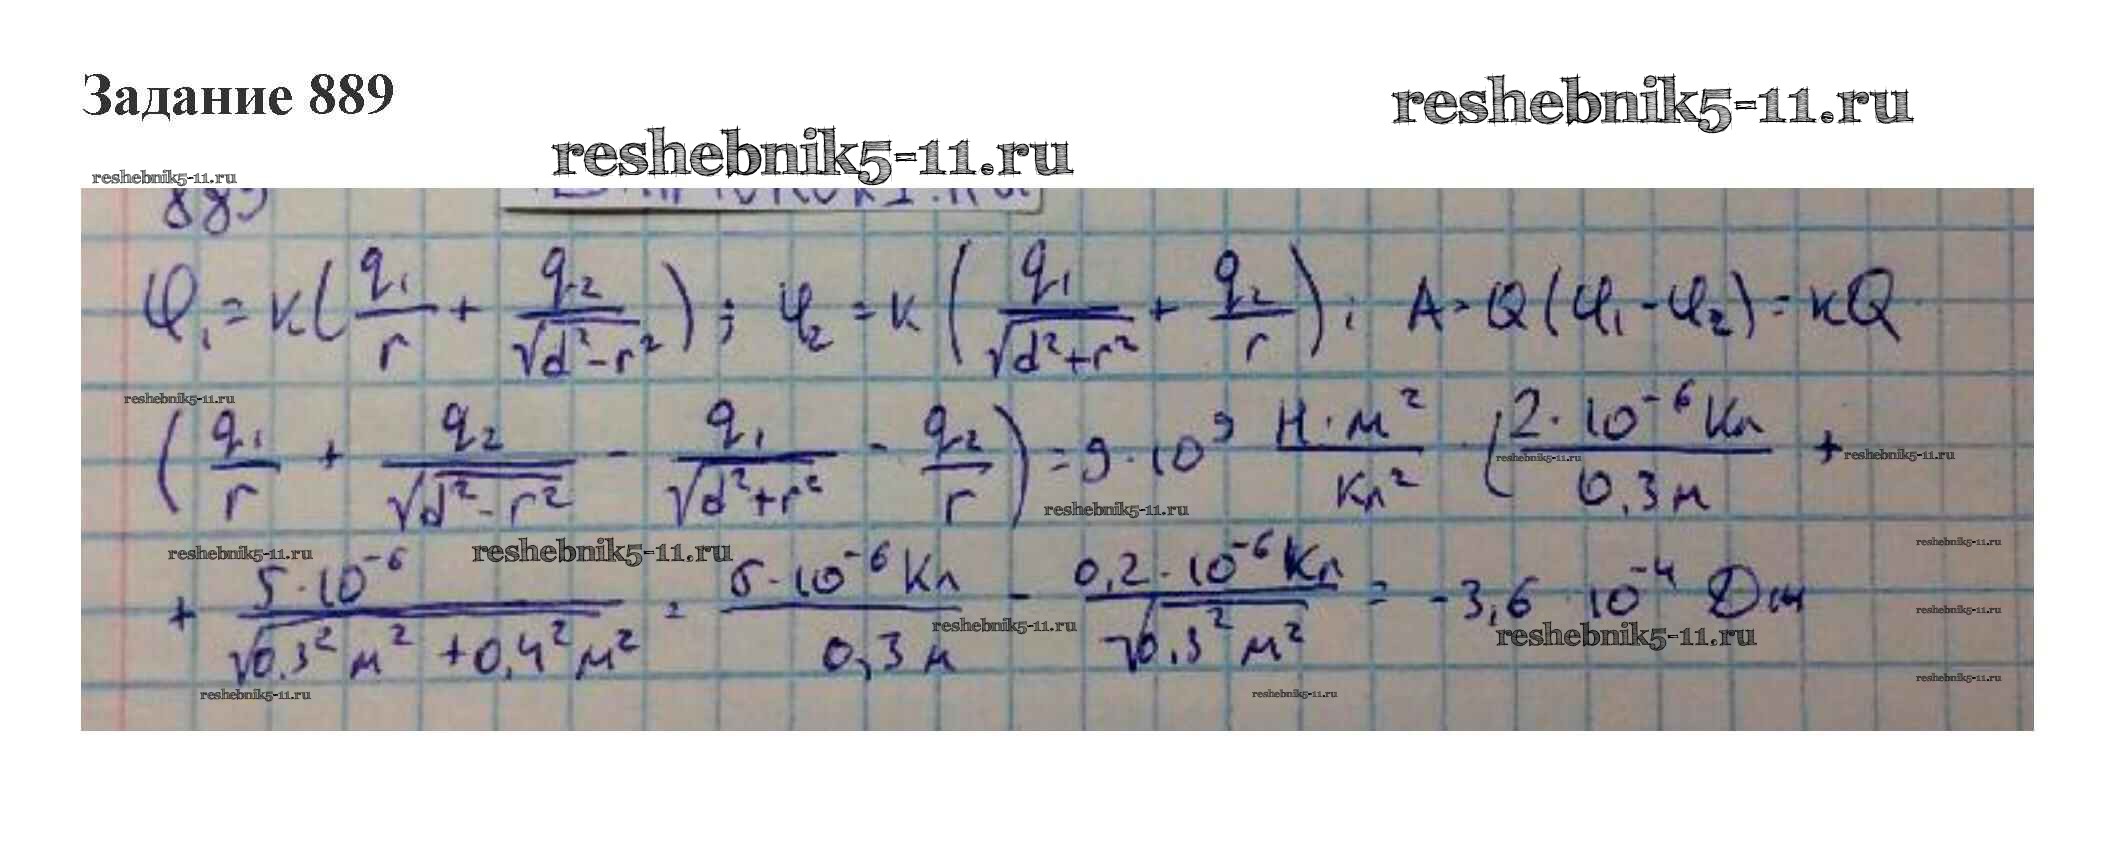 Задание 889
reshebnik5-11.ru
reshebnik5-11.ru
reshebnik5-11.ru
889
φ₁ = к(q₁/r + q₂/√(d²-r²)); φ₂ = к(q₁/√(d²+r²) + q₂/r); A = Q(φ₁-φ₂) = кQ
reshebnik5-11.ru
(q₁/r + q₂/√(d²-r²) - q₁/√(d²+r²) - q₂/r) = 9·10⁹ Н·м²/Кл² · (2·10⁻⁶ Кл/0,3м +
reshebnik5-11.ru
reshebnik5-11.ru
reshebnik5-11.ru
reshebnik5-11.ru
reshebnik5-11.ru
reshebnik5-11.ru
+ 5·10⁻⁶/√(0,3²м² + 0,4²м²) = 5·10⁻⁶ Кл/0,3м - 0,2·10⁻⁶ Кл/√(0,3²м²) = -3,6·10⁻⁴ Дж
reshebnik5-11.ru
reshebnik5-11.ru
reshebnik5-11.ru
reshebnik5-11.ru
reshebnik5-11.ru
reshebnik5-11.ru